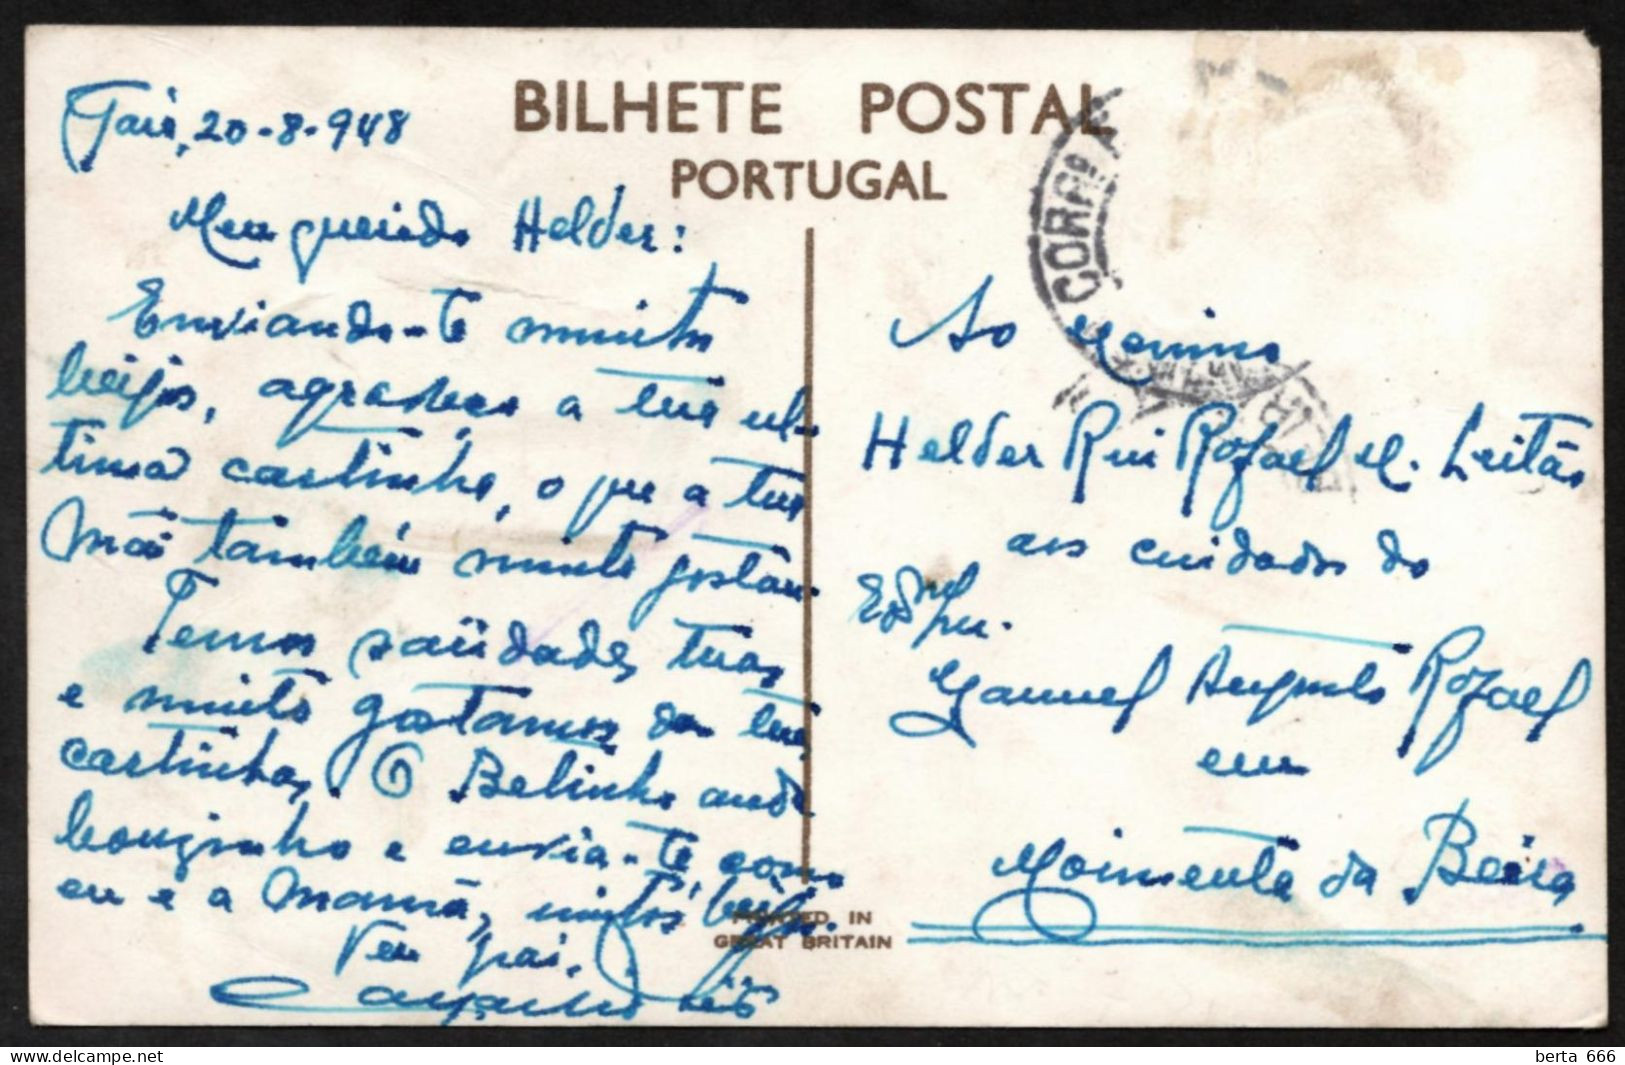 BILHETE POSTAL
PORTUGAL
20-8-948
Meu querido Helder:
Enviando-te muitos
beijos, agradeço a tua ul-
tima cartinha, o que a tua
Mãi também muito gostou.
Temos saüdades tuas
e muito gostamos da tua
cartinha. O Belinho anda
bonzinho e envia-te, como
eu e a Mamã, muitos beijos.
Teu pai,
Ao Menino
Helder Rui Rafael M. Leitão
aos cuidados do
Exmo Snr.
Manuel Augusto Rafael
em
Moimenta da Beira
PRINTED IN
GREAT BRITAIN
CORR
berta 666